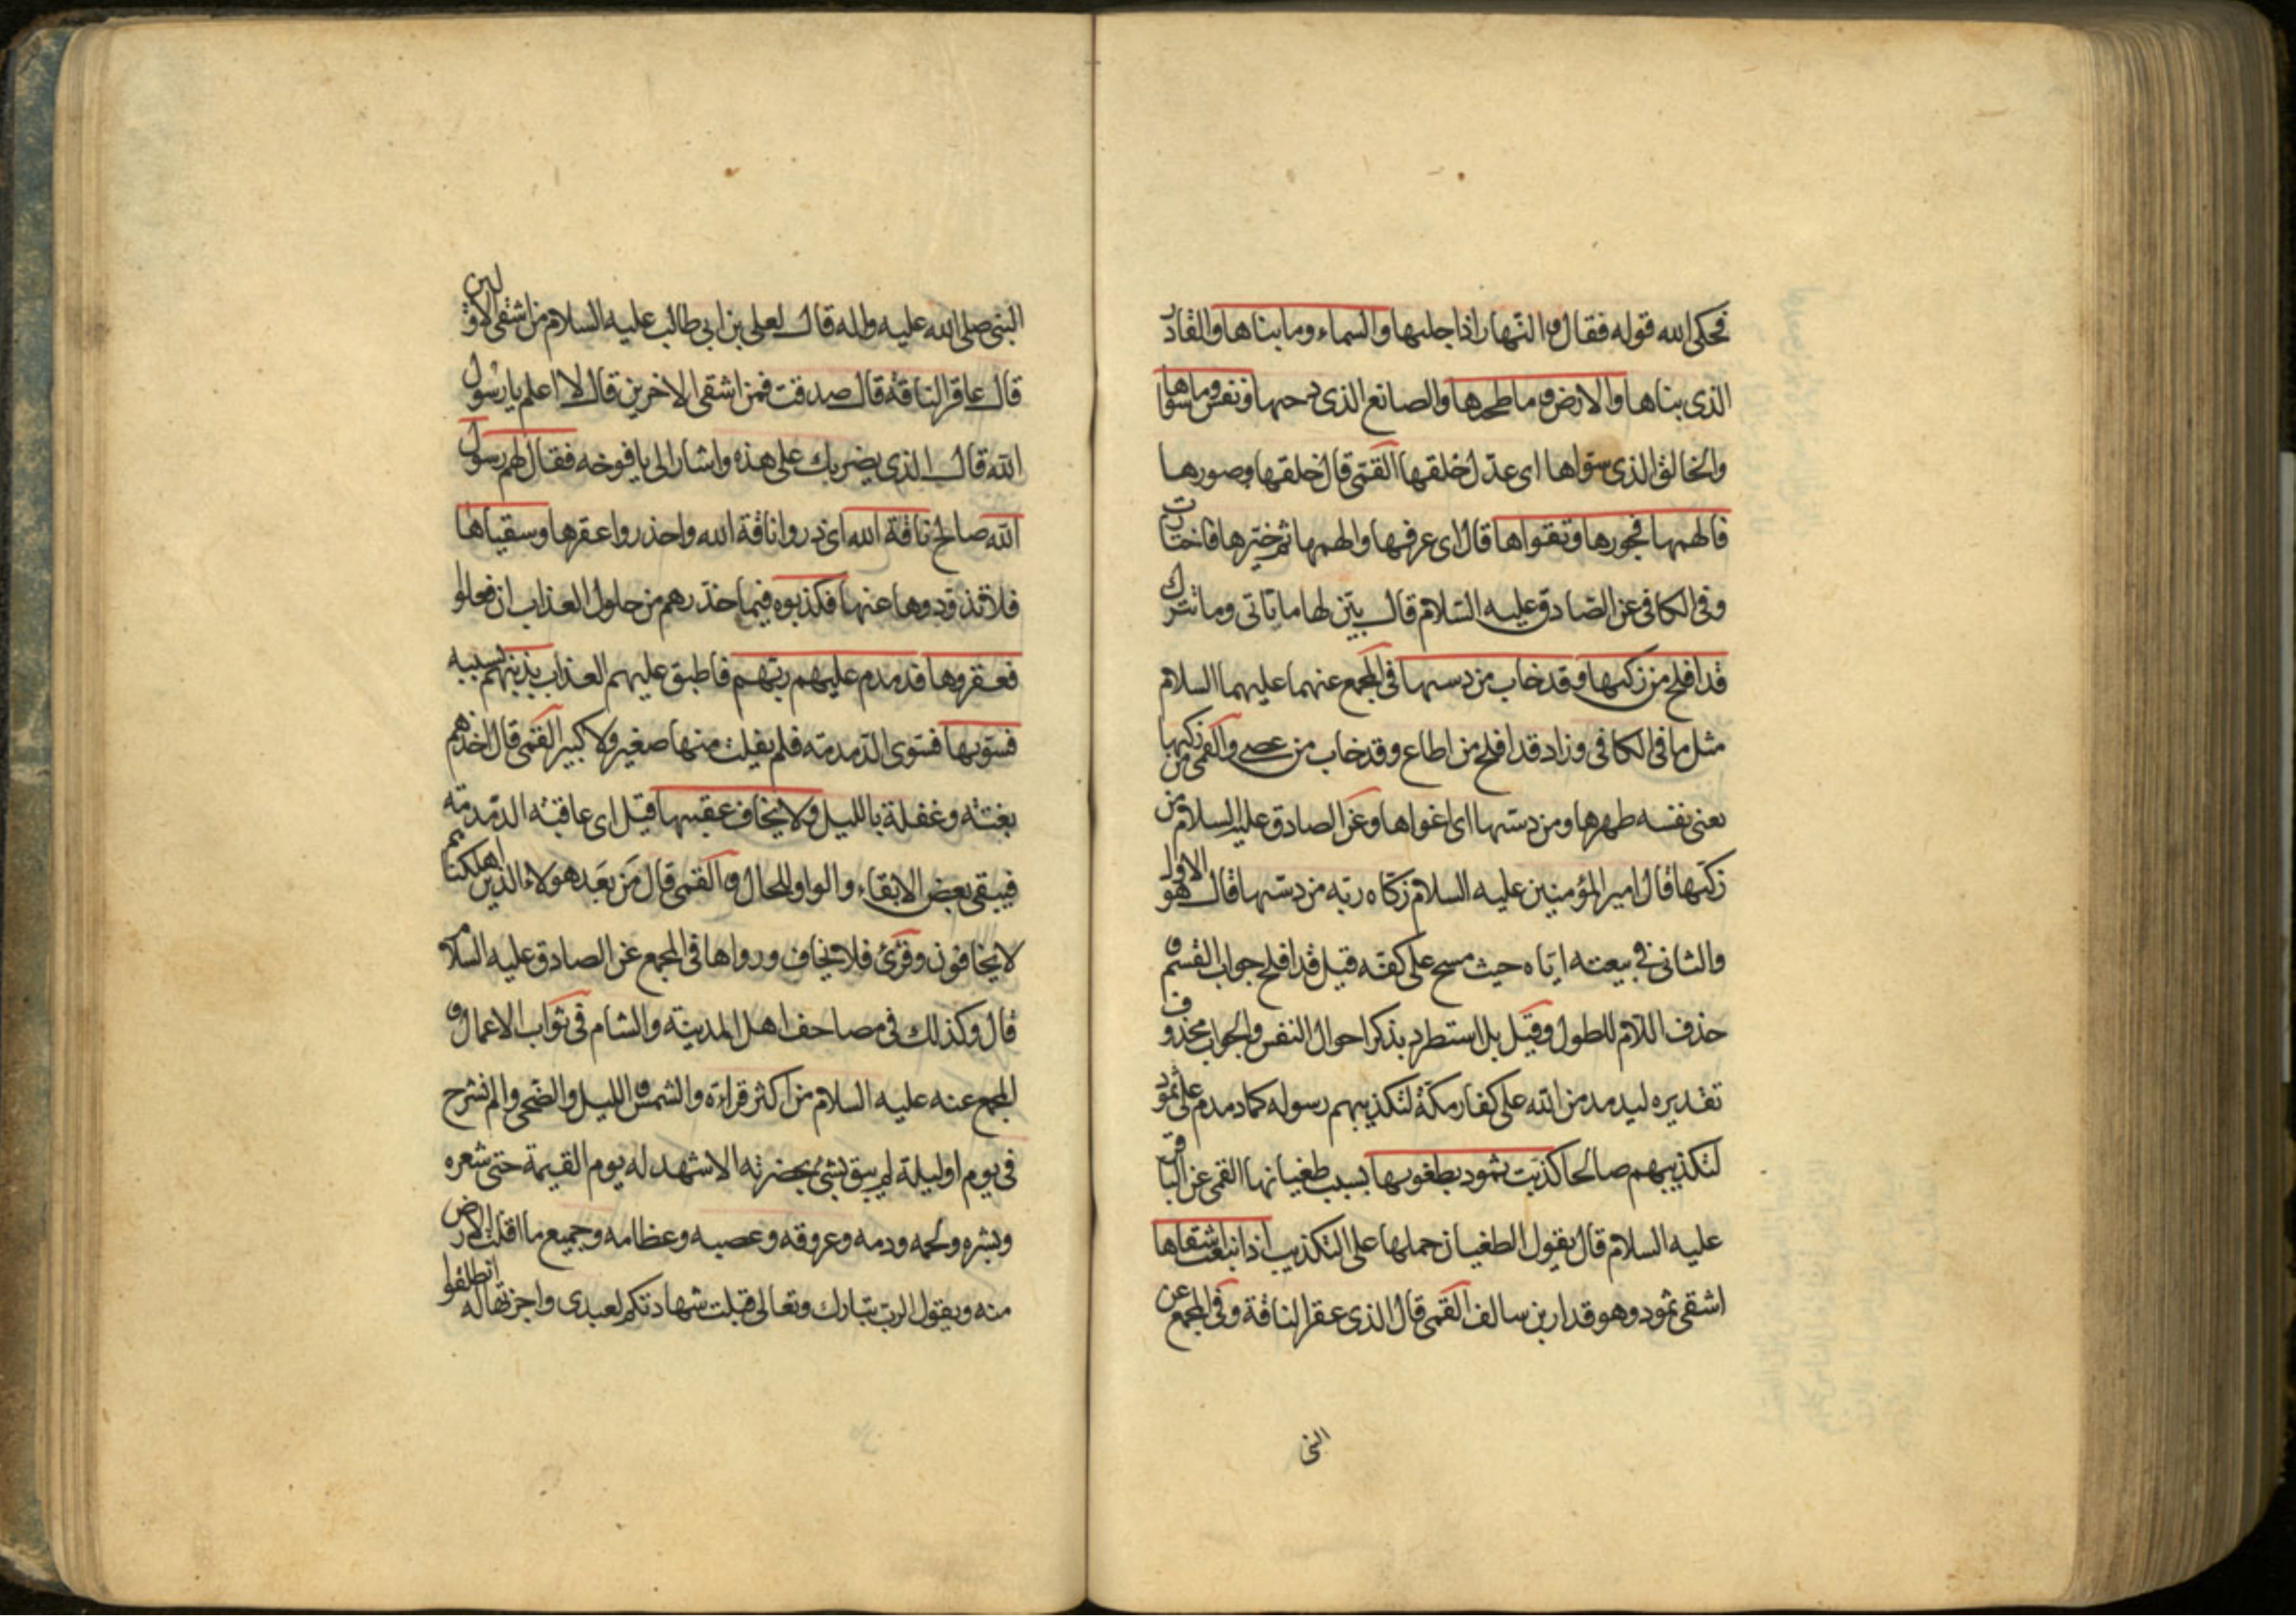 فحكى الله قوله فقال والنهار اذا جليها والسماء وما بناها والقادر
الذى بناها والارض وما طحيها والصانع الذى دحيها ونفس وما سواها
والخالق الذى سواها اى عدل خلقها القمى قال خلقها وصورها
فالهمها فجورها وتقواها قال اى عرفها والهمها ثم خيرها فاختارت
وفى الكافى عن الصادق عليه السلام قال بين لها ما تاتى وما تترك
قد افلح من زكيها وقد خاب من دسيها فى المجمع عنهما عليهما السلام
مثل ما فى الكافى وزاد قد افلح من اطاع وقد خاب من عصى والقمى من زكيها
يعنى نفسه طهرها ومن دسيها اى اغواها وعن الصادق عليه السلام من
زكيها قال امير المؤمنين عليه السلام زكاه ربه من دسيها قال هو الاول
والثانى فى بيعته اياه حيث مسح على كفه قيل قد افلح جواب القسم و
حذف اللام للطول وقيل بل استطرد بذكر احوال النفس والجواب محذوف
تقديره ليدمدمن الله على كفار مكة لتكذيبهم رسوله كما دمدم على ثمود
لتكذيبهم صالحا كذبت ثمود بطغويها بسبب طغيانها القمى عن الباقر
عليه السلام قال يقول الطغيان حملها على التكذيب اذ انبعث اشقاها
اشقى ثمود وهو قدار بن سالف القمى قال الذى عقر الناقة وفى المجمع عن
النبى
النبى صلى الله عليه واله قال لعلى بن ابى طالب عليه السلام من اشقى الاولين
قال عاقر الناقة قال صدقت فمن اشقى الاخرين قال لا اعلم يا رسول
الله قال الذى يضربك على هذه واشار الى يافوخه فقال لهم رسول
الله صالح ناقة الله اى ذروا ناقة الله واحذروا عقرها وسقياها
فلا تذودوها عنها فكذبوه فيما حذرهم من حلول العذاب ان فعلوا
فعقروها فدمدم عليهم ربهم فاطبق عليهم العذاب بذنبهم بسببه
فسويها فسوى الدمدمة فلم يفلت منها صغير ولا كبير القمى قال اخذهم
بغتة وغفلة بالليل ولا يخاف عقبيها قيل اى عاقبة الدمدمة
فيبقى بعض الابقاء والواو للحال والقمى قال من بعد هولاء الذين اهلكناهم
لا يخافون وقرئ فلا يخاف ورواها فى المجمع عن الصادق عليه السلام
قال وكذلك فى مصاحف اهل المدينة والشام فى ثواب الاعمال و
المجمع عنه عليه السلام من اكثر قراءة والشمس والليل والضحى والم نشرح
فى يوم او ليلة لم يبق شئ بحضرته الا شهد له يوم القيمة حتى شعره
وبشره ولحمه ودمه وعروقه وعصبه وعظامه وجميع ما اقلت الارض
منه ويقول الرب تبارك وتعالى قبلت شهادتكم لعبدى واجزتها له انطلقوا